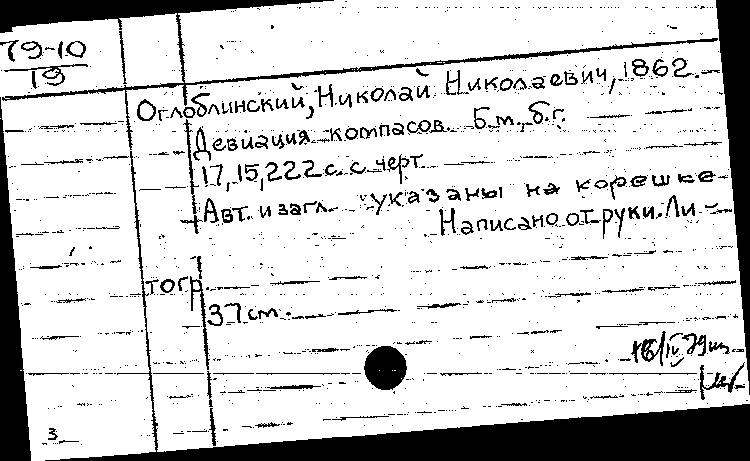 79-10
19
Оглоблинский, Николай Николаевич, 1862.
Девиация компасов. Б.м., б.г.
17, 15, 222 с. с черт.
Авт. и загл. указаны на корешке
Написано от руки. Ли-
тогр.
37 см.
18/IV 79
3